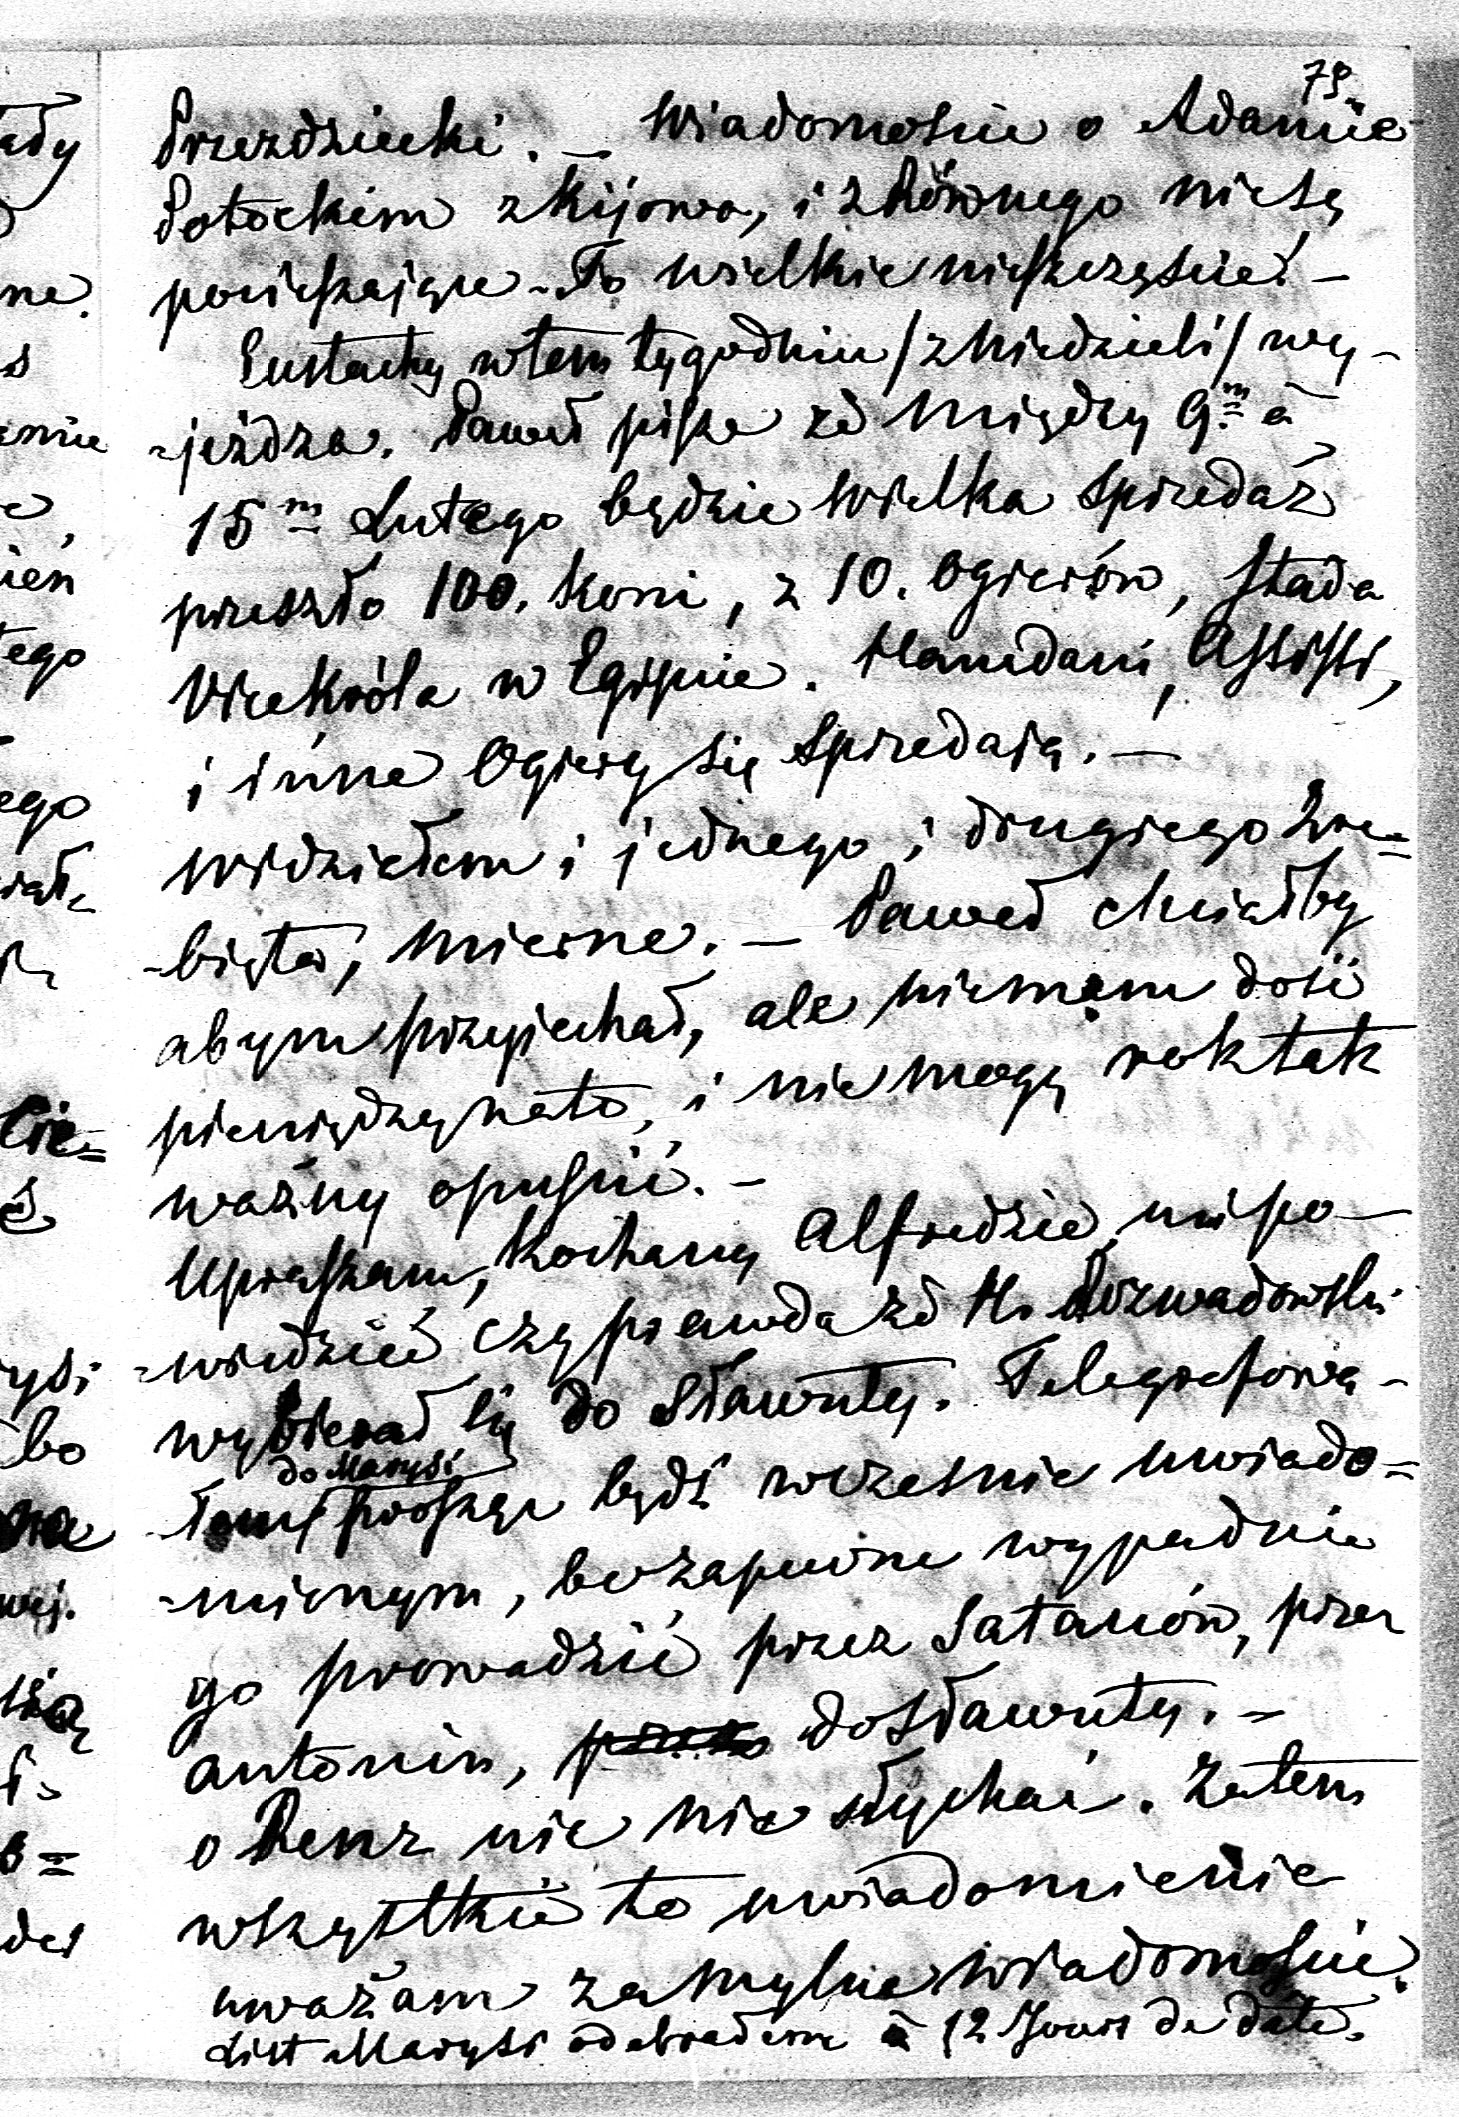 79.
Przezdziecki. — Wiadomoscie o Adamie
Potockim z Kijowa, i z Równego niesą
pocieszające. To wielkie nieszczęscie! —
Eustachy w tem tygodniu / z niedzieli / wy-
-jeżdza. Paweł pisze że między 9m a
15m Lutego będzie wielka sprzedaż
przeszło 100. koni, z 10. Ogierów, stada
Vicekróla w Egipcie. Hamdani,
i inne Ogiery się sprzedają. —
widziełem i jednego i drugiego Zre=
-bięta, mierne. — Paweł chciałby
abym przyjechał, ale niemam dosić
pieniędzy nato, i nie mogę rok tak
ważny opuscić. —
Upraszam, kochany Alfredzie, mi po-
-wiedzieć czy prawda że H. Rozwadowski
wybierał się do Sławuty. Telegrafowa-
do Marysi
-łem, proszę bydź wczesnie uwiado=
-mionym, bo zapewne wypadnie
go prowadzić przez Satanów, przez
Antonin, do Sławuty. —
o Renz nic nie słychać. Zatem
wszystkie to uwiadomienie
uważam za mylne wiadomoscie.
List Marysi odebrałem à 12 Jours de date.
ady
ne.
s
ien
tego
ego
Cie=
ysi
bo
wej.